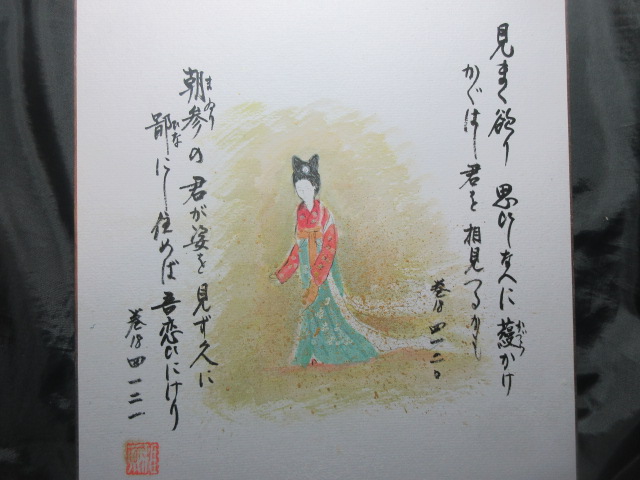 見まく欲り 思ひしなへに 蘰かけ
かづら
かぐはし君を 相見つるかも
巻18 四一二〇
朝参の 君が姿を 見ず久に
まゐり
鄙にし住めば 吾恋ひにけり
ひな
巻18 四一二一